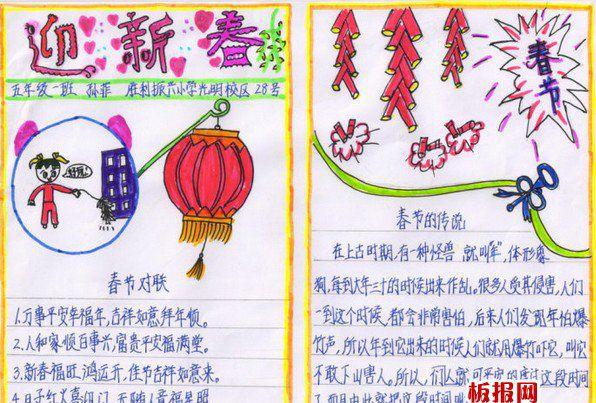 迎新春
五年级一班 孙菲 胜利振兴小学光明校区 28号
春节对联
1.万事平安幸福年,吉祥如意拜年顺。
2.人和家顺百事兴,富贵平安福满堂。
3.新春福旺,鸿运开,佳节吉祥如意来。
春节
春节的传说
在上古时期,有一种怪兽 就叫“年”,体形
狗,每到大年三十的时候出来作乱。很多人受其侵害,人们
一到这个时候 都会非常害怕,后来人们发现年怕爆
竹声,所以年到它出来的时候人们就用爆竹吓它,叫它
不敢下山害人。所以,们人就可平安的度过这段时间
板报网